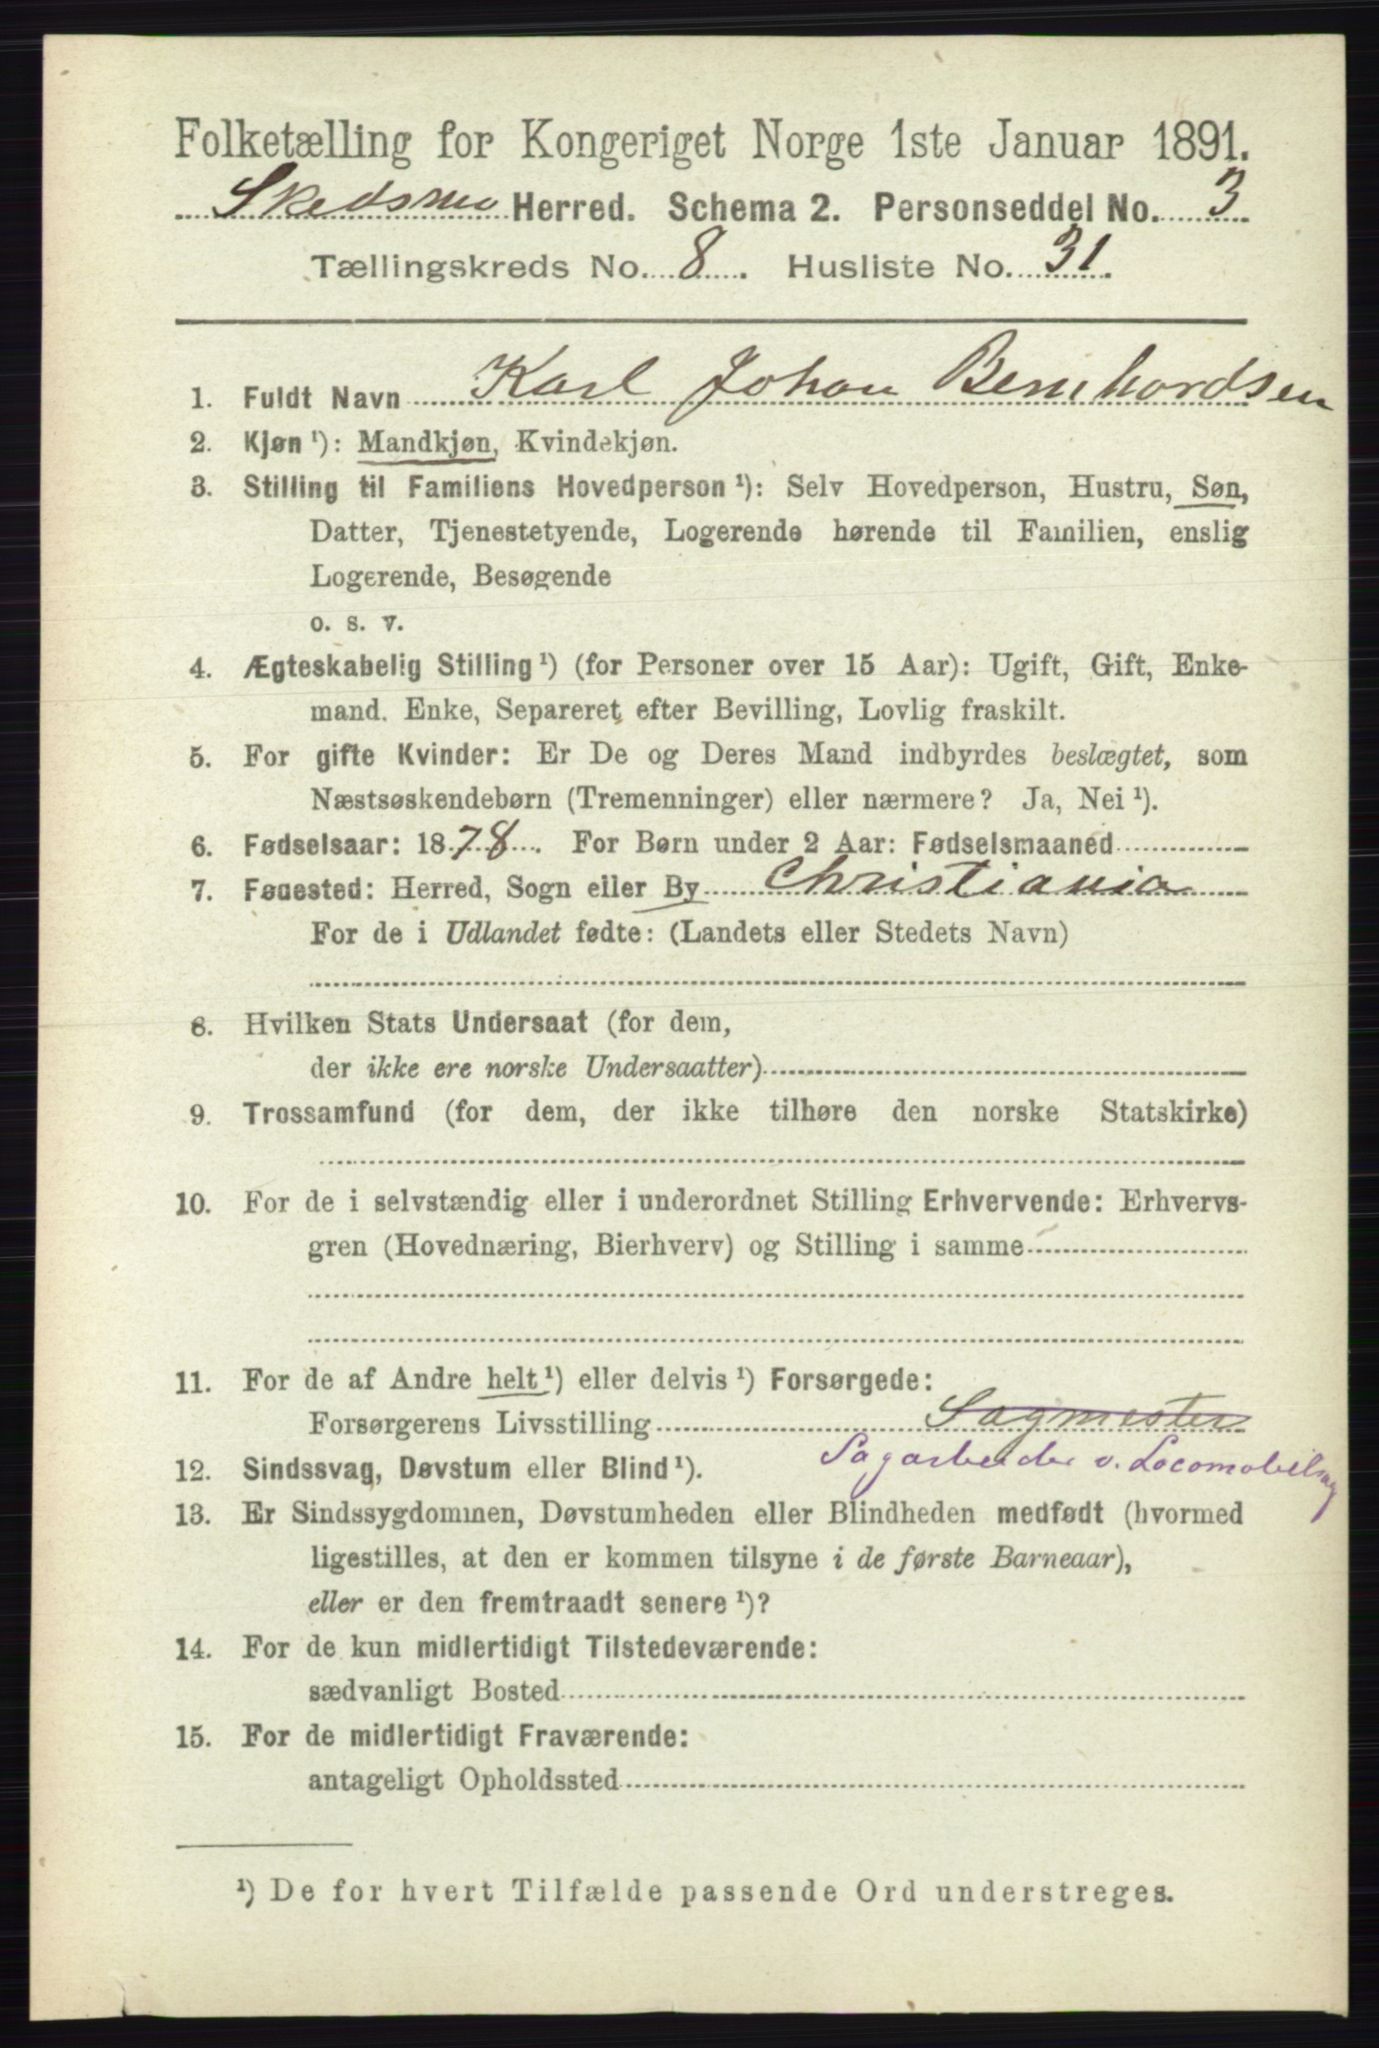 Folketælling for Kongeriget Norge 1ste Januar 1891.
Skedsmo Herred. Schema 2. Personseddel No. 3
Tællingskreds No. 8. Husliste No. 31.
1. Fuldt Navn Karl Johan Bernhardsen
2. Kjøn¹): Mandkjøn, Kvindekjøn.
3. Stilling til Familiens Hovedperson¹): Selv Hovedperson, Hustru, Søn,
Datter, Tjenestetyende, Logerende hørende til Familien, enslig
Logerende, Besøgende
o. s. v.
4. Ægteskabelig Stilling¹) (for Personer over 15 Aar): Ugift, Gift, Enke-
mand. Enke, Separeret efter Bevilling, Lovlig fraskilt.
5. For gifte Kvinder: Er De og Deres Mand indbyrdes beslægtet, som
Næstsøskendebørn (Tremenninger) eller nærmere? Ja, Nei¹).
6. Fødselsaar: 1878. For Børn under 2 Aar: Fødselsmaaned
7. Fødested: Herred, Sogn eller By Christiania
For de i Udlandet fødte: (Landets eller Stedets Navn)
8. Hvilken Stats Undersaat (for dem,
der ikke ere norske Undersaatter)
9. Trossamfund (for dem, der ikke tilhøre den norske Statskirke)
10. For de i selvstændig eller i underordnet Stilling Erhvervende: Erhvervs-
gren (Hovednæring, Bierhverv) og Stilling i samme
11. For de af Andre helt¹) eller delvis¹) Forsørgede:
Forsørgerens Livsstilling Sagmester
Sagarbeider v. Locomobilsag
12. Sindssvag, Døvstum eller Blind¹).
13. Er Sindssygdommen, Døvstumheden eller Blindheden medfødt (hvormed
ligestilles, at den er kommen tilsyne i de første Barneaar),
eller er den fremtraadt senere¹)?
14. For de kun midlertidigt Tilstedeværende:
sædvanligt Bosted
15. For de midlertidigt Fraværende:
antageligt Opholdssted
¹) De for hvert Tilfælde passende Ord understreges.